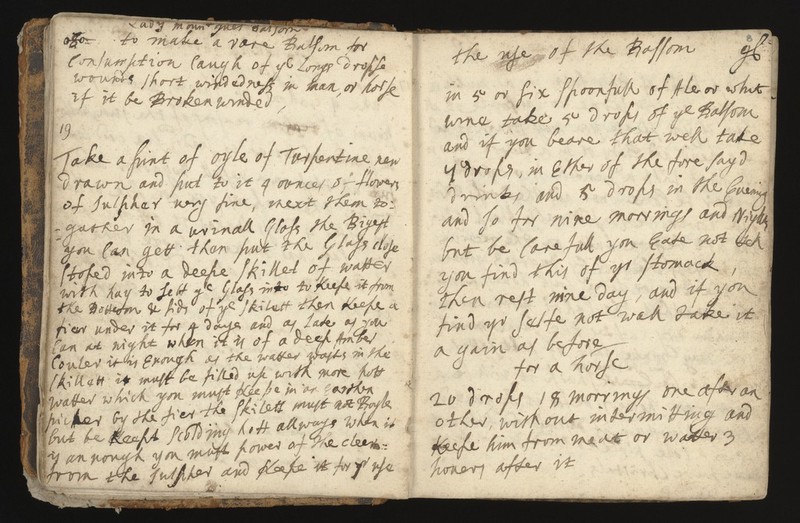 Lady Moun Joies Balsom
to make a rare Balsom for
Consumption Caugh of ye Longs dropse
wounds short windedness in man, or horse
if it be Broken winded,
19
Take a pint of oyle of Turpentine new
drawn and put to it 4 ounces of flowers
of Sulpher very fine, mext them to:
:gather in a urinall Glass the Bigest
you Can gett than put the Glass close
stoped into a deepe skillet of watter
with hay to sett ye Glass into to keepe it from
the Bottom & sids of ye skilett then keepe a
fier under it for 4 days and as Late as you
Can at night when it is of a deep Amber
Couler it is Enough as the watter wasts in the
skillett it must be filled up with more hott
watter which you must keepe in an earthen
picher by the fier the skilett must not Boyle
but be keept scolding hott allways when it
is annough you must power of the cleer=
from the sulpher and keepe it for yr use
the use of the Balsom 96
in 5 or six spoonfull of Ale or whit
wine, take 5 drops of ye Balsom
and if you beare that well take
7 drops, in Ether of the fore sayd
drinks and 5 drops in the Evening
and so for nine mornings and Nights
but be Carefull you Eate not
you find this of yr stomack,
then rest nine day, and if you
find yr selfe not well take it
a gain as before
for a horse
20 drops 18 mornings one after an
other, without intermitting and
keepe him from meat or watter 3
howers after it